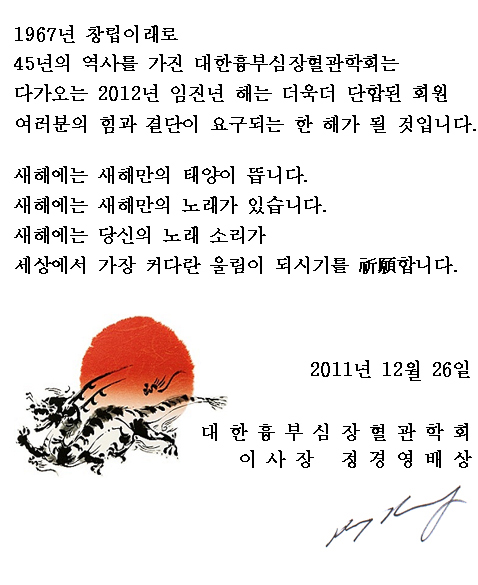 1967년 창립이래로
45년의 역사를 가진 대한흉부심장혈관학회는
다가오는 2012년 임진년 해는 더욱더 단합된 회원
여러분의 힘과 결단이 요구되는 한 해가 될 것입니다.
새해에는 새해만의 태양이 뜹니다.
새해에는 새해만의 노래가 있습니다.
새해에는 당신의 노래 소리가
세상에서 가장 커다란 울림이 되시기를 祈願합니다.
2011년 12월 26일
대 한 흉 부 심 장 혈 관 학 회
이 사 장 정 경 영 배 상